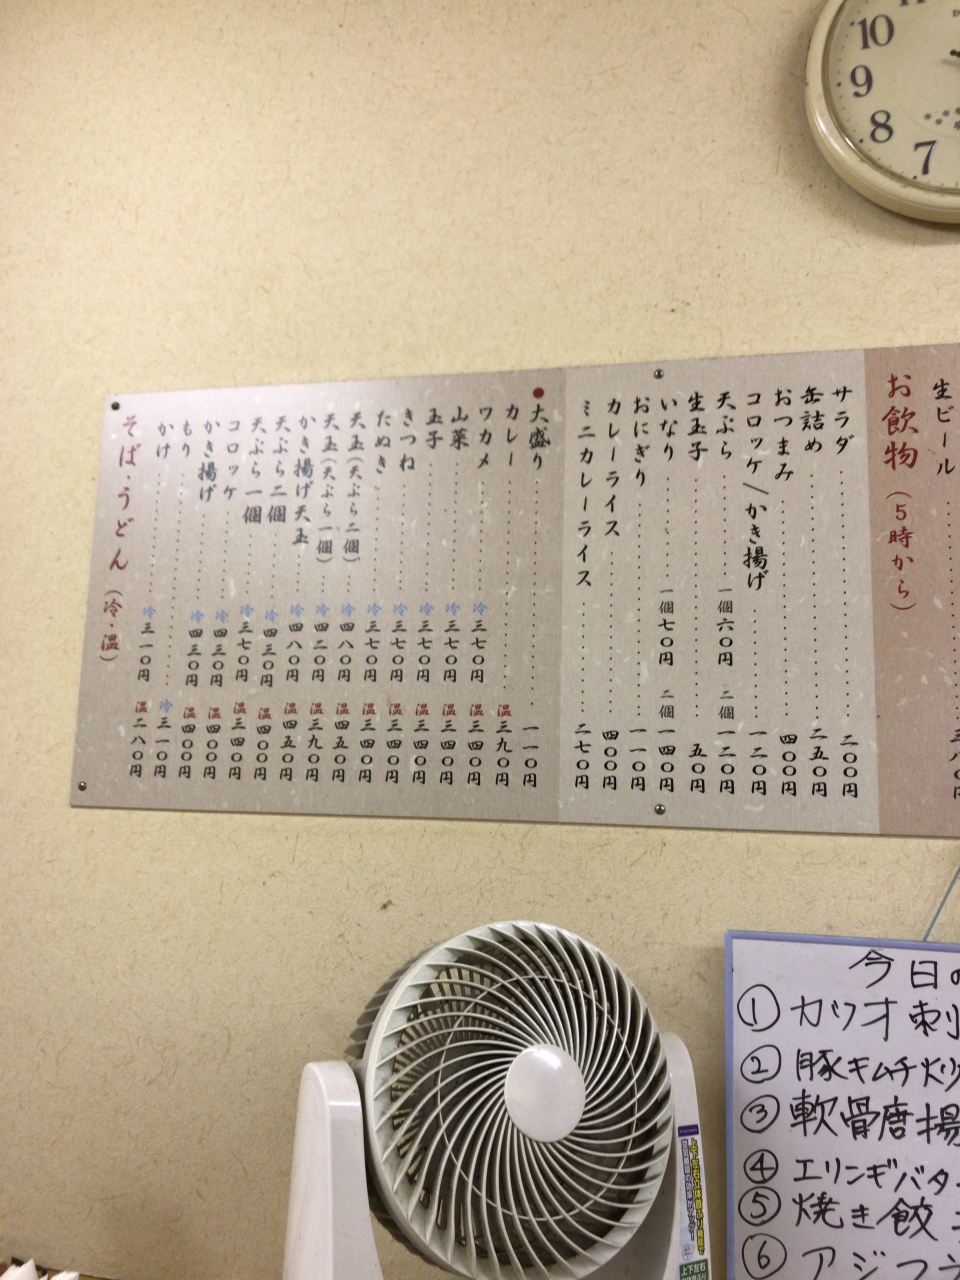 10
9
8
7
そば・うどん(冷・温)
かけ 冷 三一〇円 温 二八〇円
もり 冷 三一〇円
かき揚げ 冷 四三〇円 温 四〇〇円
コロッケ 冷 四三〇円 温 四〇〇円
天ぷら一個 冷 三七〇円 温 三四〇円
天ぷら二個 冷 四三〇円 温 四〇〇円
かき揚げ天玉 冷 四八〇円 温 四五〇円
天玉(天ぷら一個) 冷 四二〇円 温 三九〇円
天玉(天ぷら二個) 冷 四八〇円 温 四五〇円
たぬき 冷 三七〇円 温 三四〇円
きつね 冷 三七〇円 温 三四〇円
玉子 冷 三七〇円 温 三四〇円
山菜 冷 三七〇円 温 三四〇円
ワカメ 冷 三七〇円 温 三四〇円
カレー 温 三九〇円
●大盛り 一一〇円
ミニカレーライス 二七〇円
カレーライス 四〇〇円
おにぎり 一一〇円
いなり 一個七〇円 二個一四〇円
生玉子 五〇円
天ぷら 一個六〇円 二個一二〇円
コロッケ/かき揚げ 一二〇円
おつまみ 四〇〇円
缶詰め 二五〇円
サラダ 二〇〇円
お飲物(5時から)
生ビール
今日の
①カツオ刺
②豚キムチ炒
③軟骨唐揚
④エリンギバター
⑤焼き餃子
⑥アジフラ